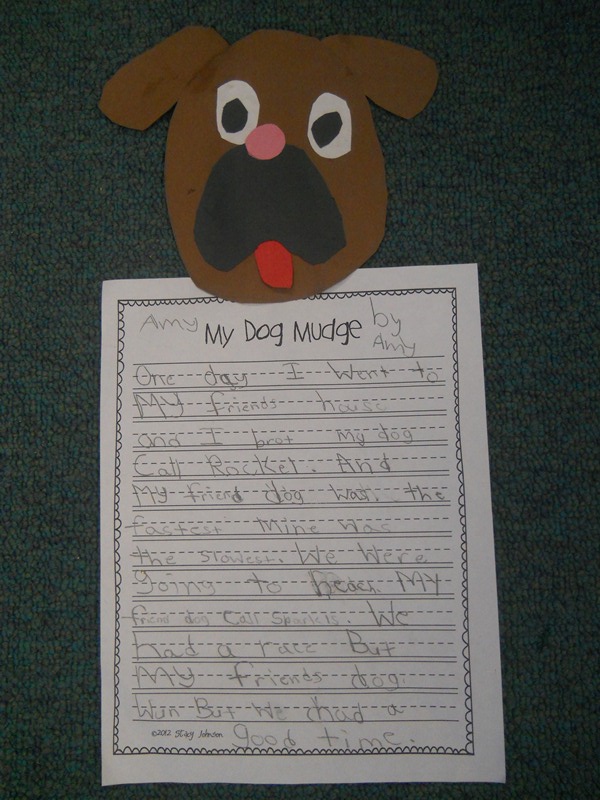 Amy My Dog Mudge by
Amy
One day I Went to
MY friends house
and I brot my dog
Call Rockel. And
MY friend dog was the
fastest Mine was
the slowest. We Were
going to Beach MY
friend dog Call Sparkls. We
had a race But
MY friends dog
Wun But We had a
©2012 Stacy Johnson good time.